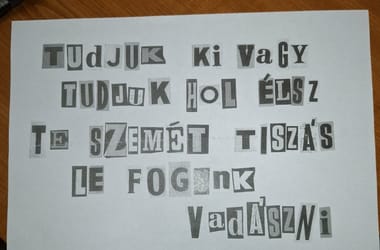 TUDJUK Ki VAGY
TUDJUK HOL ÉLSZ
TE SZEMÉT TISZÁS
LE FOGUnK
VADÁSZNi